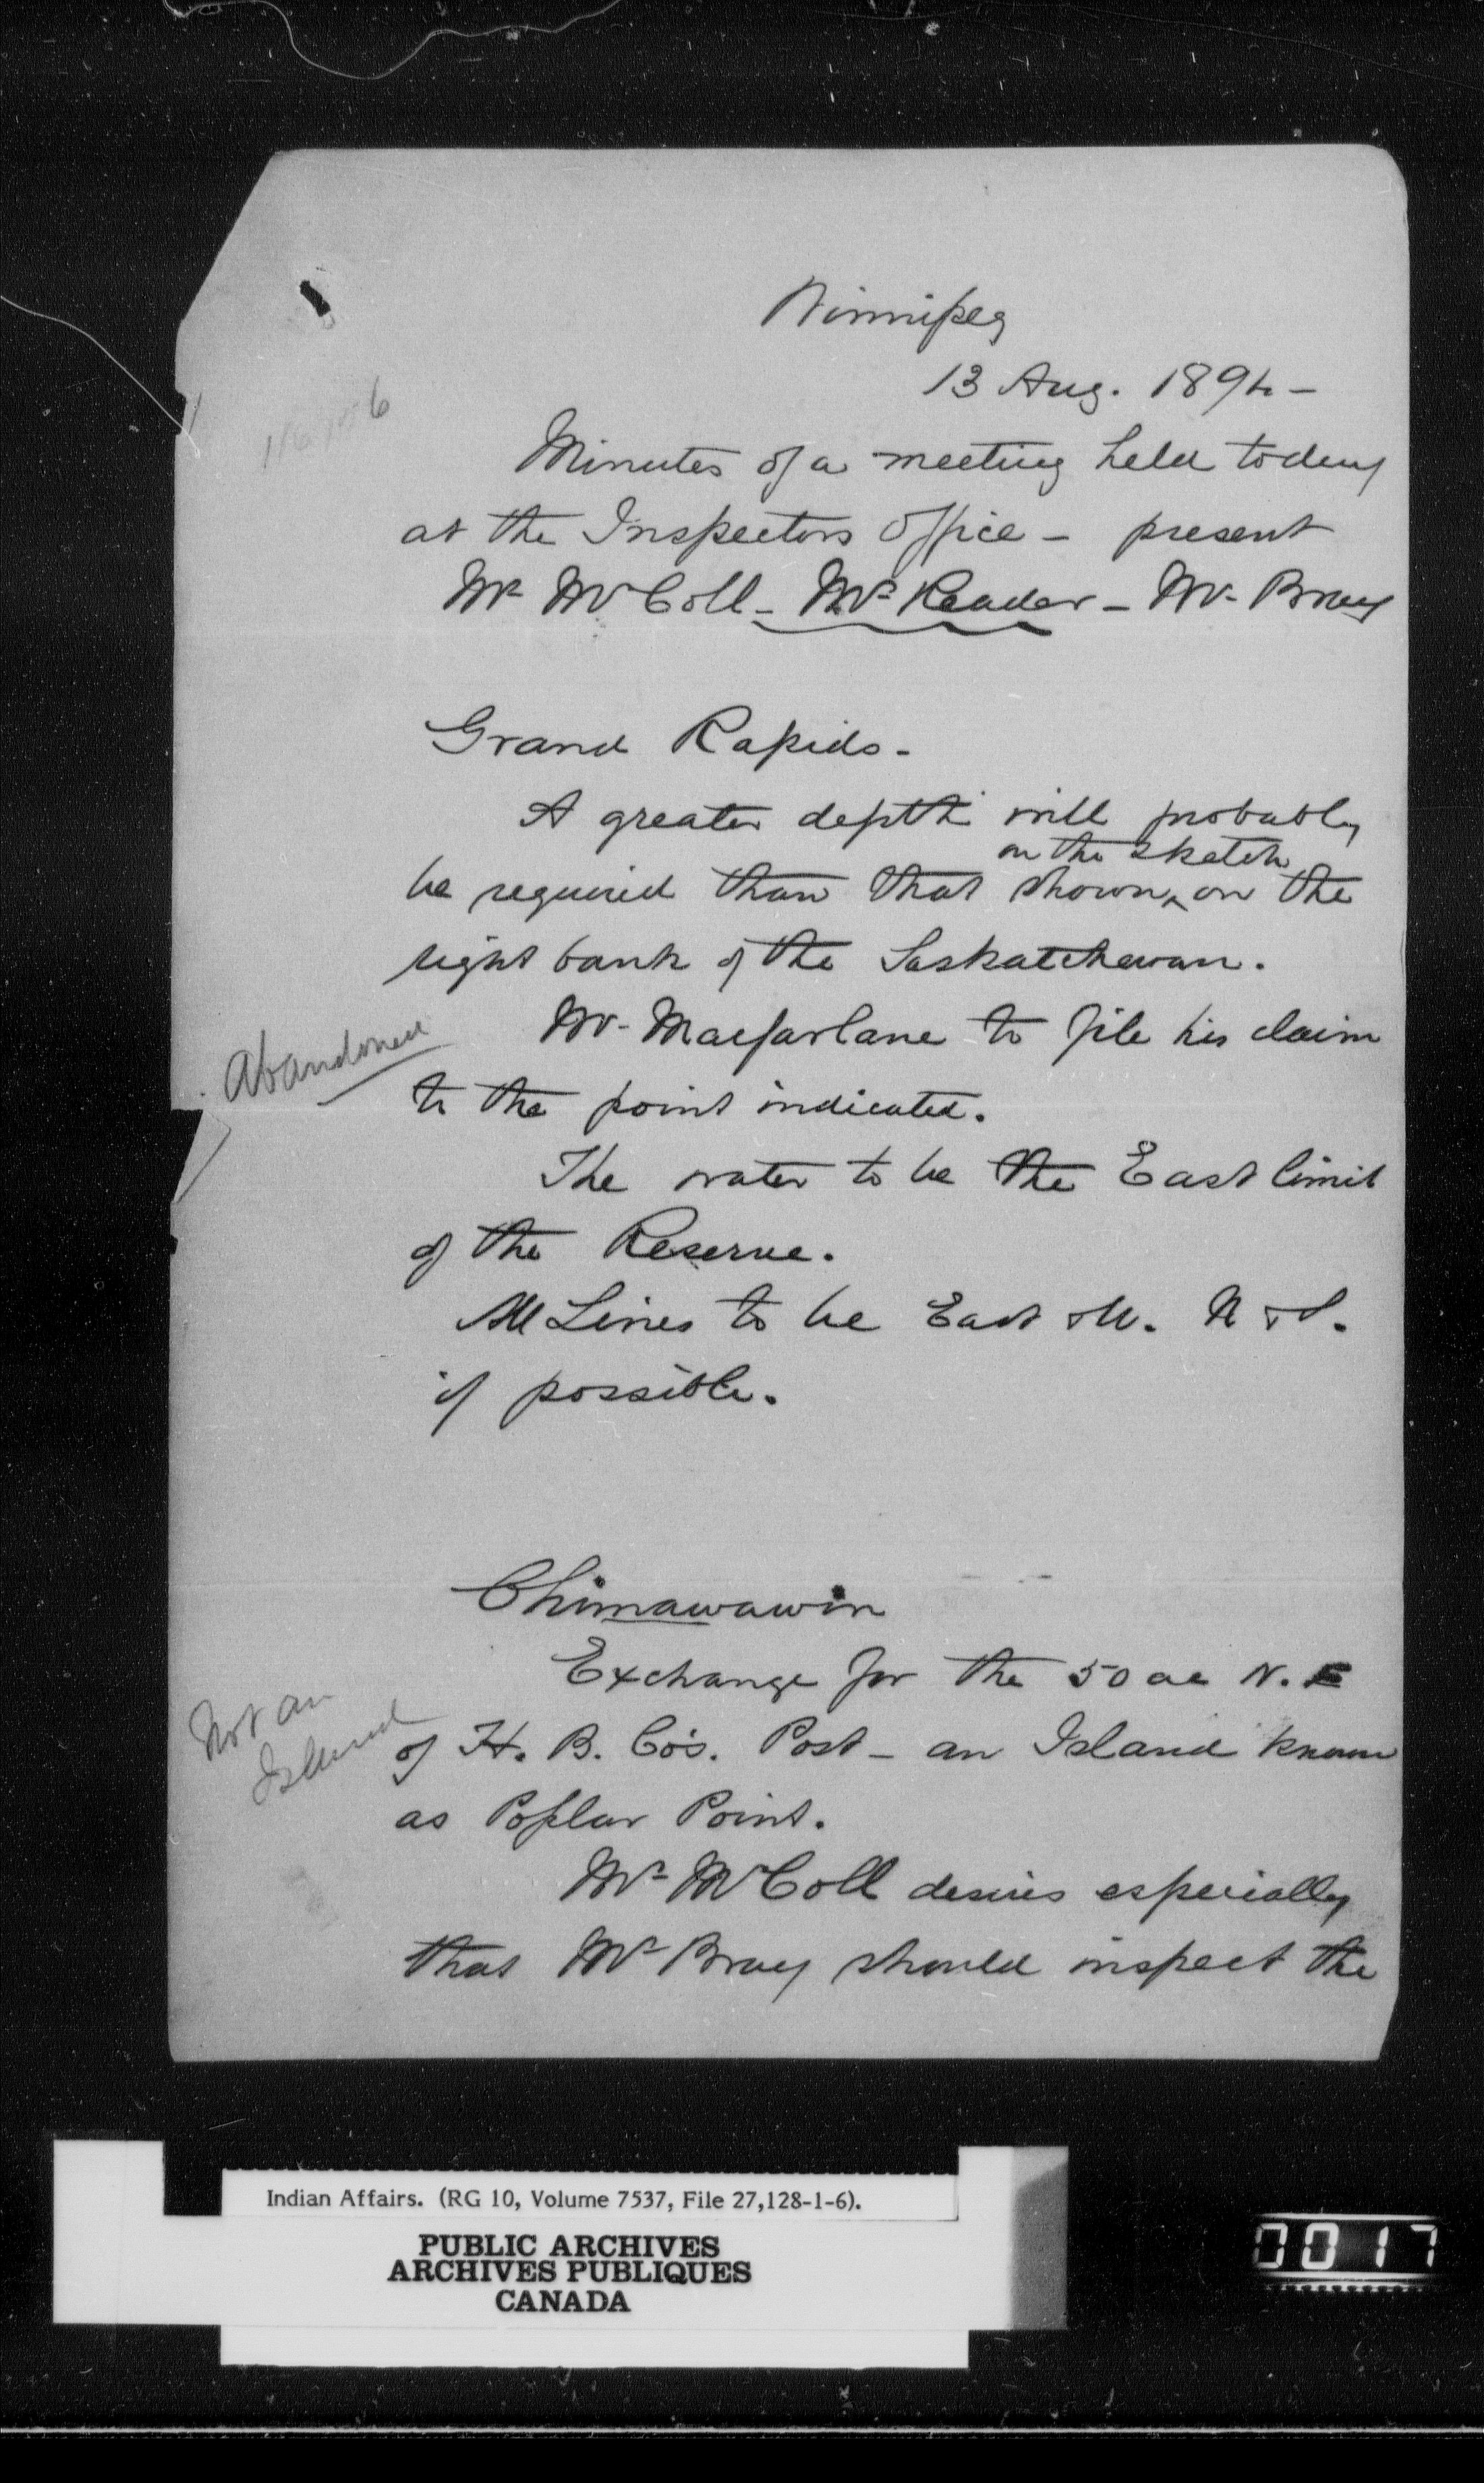 Winnipeg
13 Aug. 1894 -
Minutes of a meeting held today
at the Inspectors Office - present
Mr McColl - Mr Reader - Mr Bray
Grand Rapids -
A greater depth will probably
on the sketch
be required than that shown ^ on the
right bank of the Saskatchewan.
Abandoned
Mr Macfarlane to file his claim
to the point indicated.
The water to be the East limit
of the Reserve.
All Lines to be East & W. N & S.
if possible.
Chimawawin
Exchange for the 50 ac N.E
Not an
Island
of H. B. Co's. Post - an Island known
as Poplar Point.
Mr McColl desires especially
that Mr Bray should inspect the
Indian Affairs. (RG 10, Volume 7537, File 27,128-1-6).
PUBLIC ARCHIVES
ARCHIVES PUBLIQUES
CANADA
0017